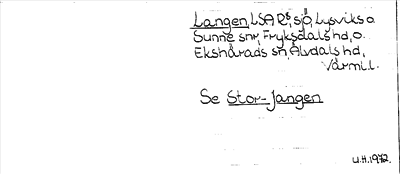 Langen, LSA R⁵, sjö, Lysviks o.
Sunne snr, Fryksdals hd, o.
Ekshärads sn, Älvdals hd,
Värml.
Se Stor-Jangen
U.H.1972.